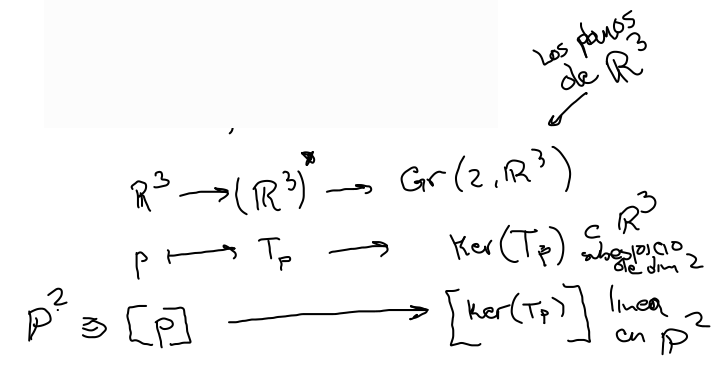 Los planos
de ℝ³
ℝ³ → (ℝ³)* → Gr(2, ℝ³)
p ↦ T_p → Ker(T_p) ⊂ ℝ³
subespacio
de dim 2
P² ∋ [p] → [Ker(T_p)] linea
en P²